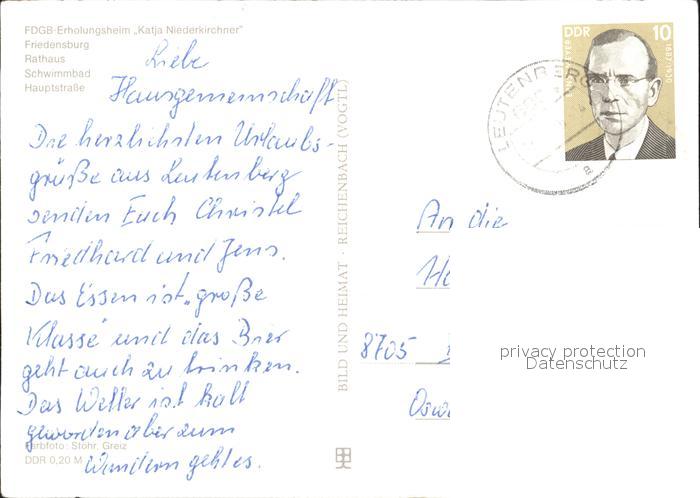 FDGB-Erholungsheim „Katja Niederkirchner"
Friedensburg
Rathaus
Schwimmbad
Hauptstraße
Liebe
Hausgemeinschaft
Die herzlichsten Urlaubs-
grüße aus Leutenberg
senden Euch Christel
Friedhard und Jens.
Das Essen ist „große
Klasse und das Bier
geht auch zu trinken.
Das Wetter ist kalt
geworden aber zum
Wandern geht es.
Farbfoto: Stöhr, Greiz
DDR 0,20 M
BILD UND HEIMAT · REICHENBACH (VOGTL)
DDR 10
1887-1930
LEUTENBERG
a
An die
8705
privacy protection
Datenschutz